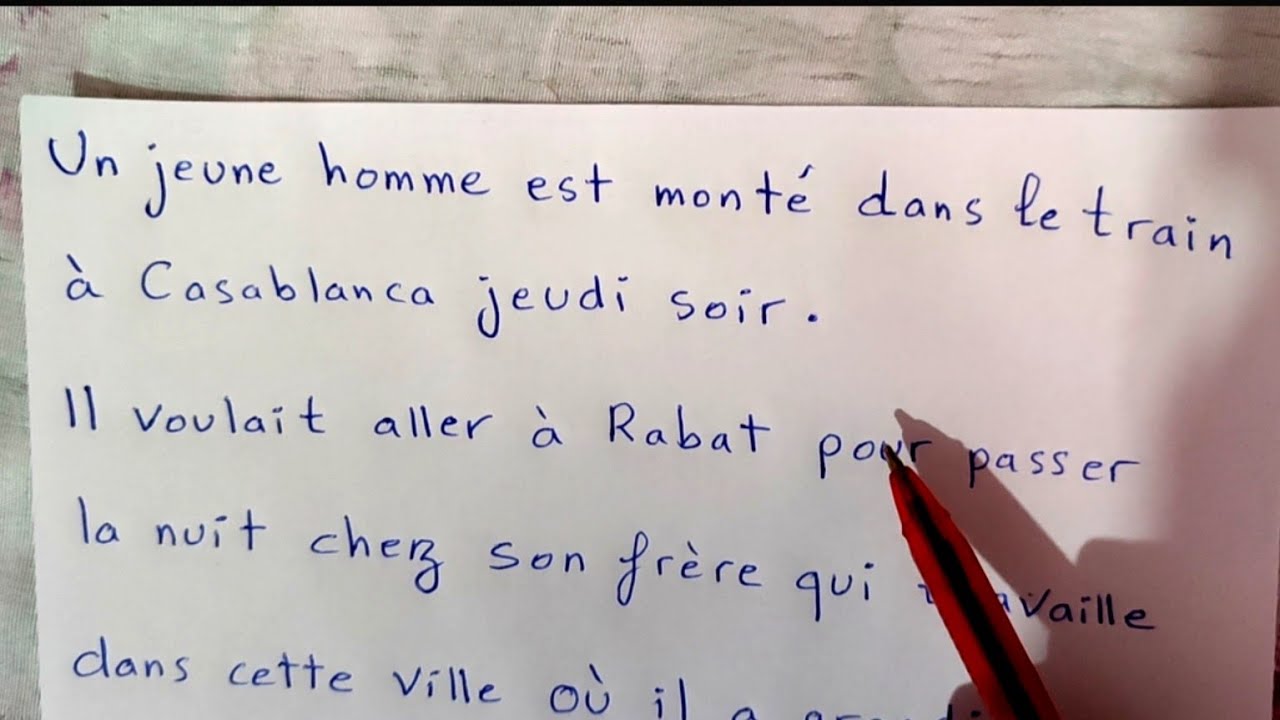 Un jeune homme est monté dans le train
à Casablanca jeudi soir.
Il voulait aller à Rabat pour passer
la nuit chez son frère qui travaille
dans cette ville où il a